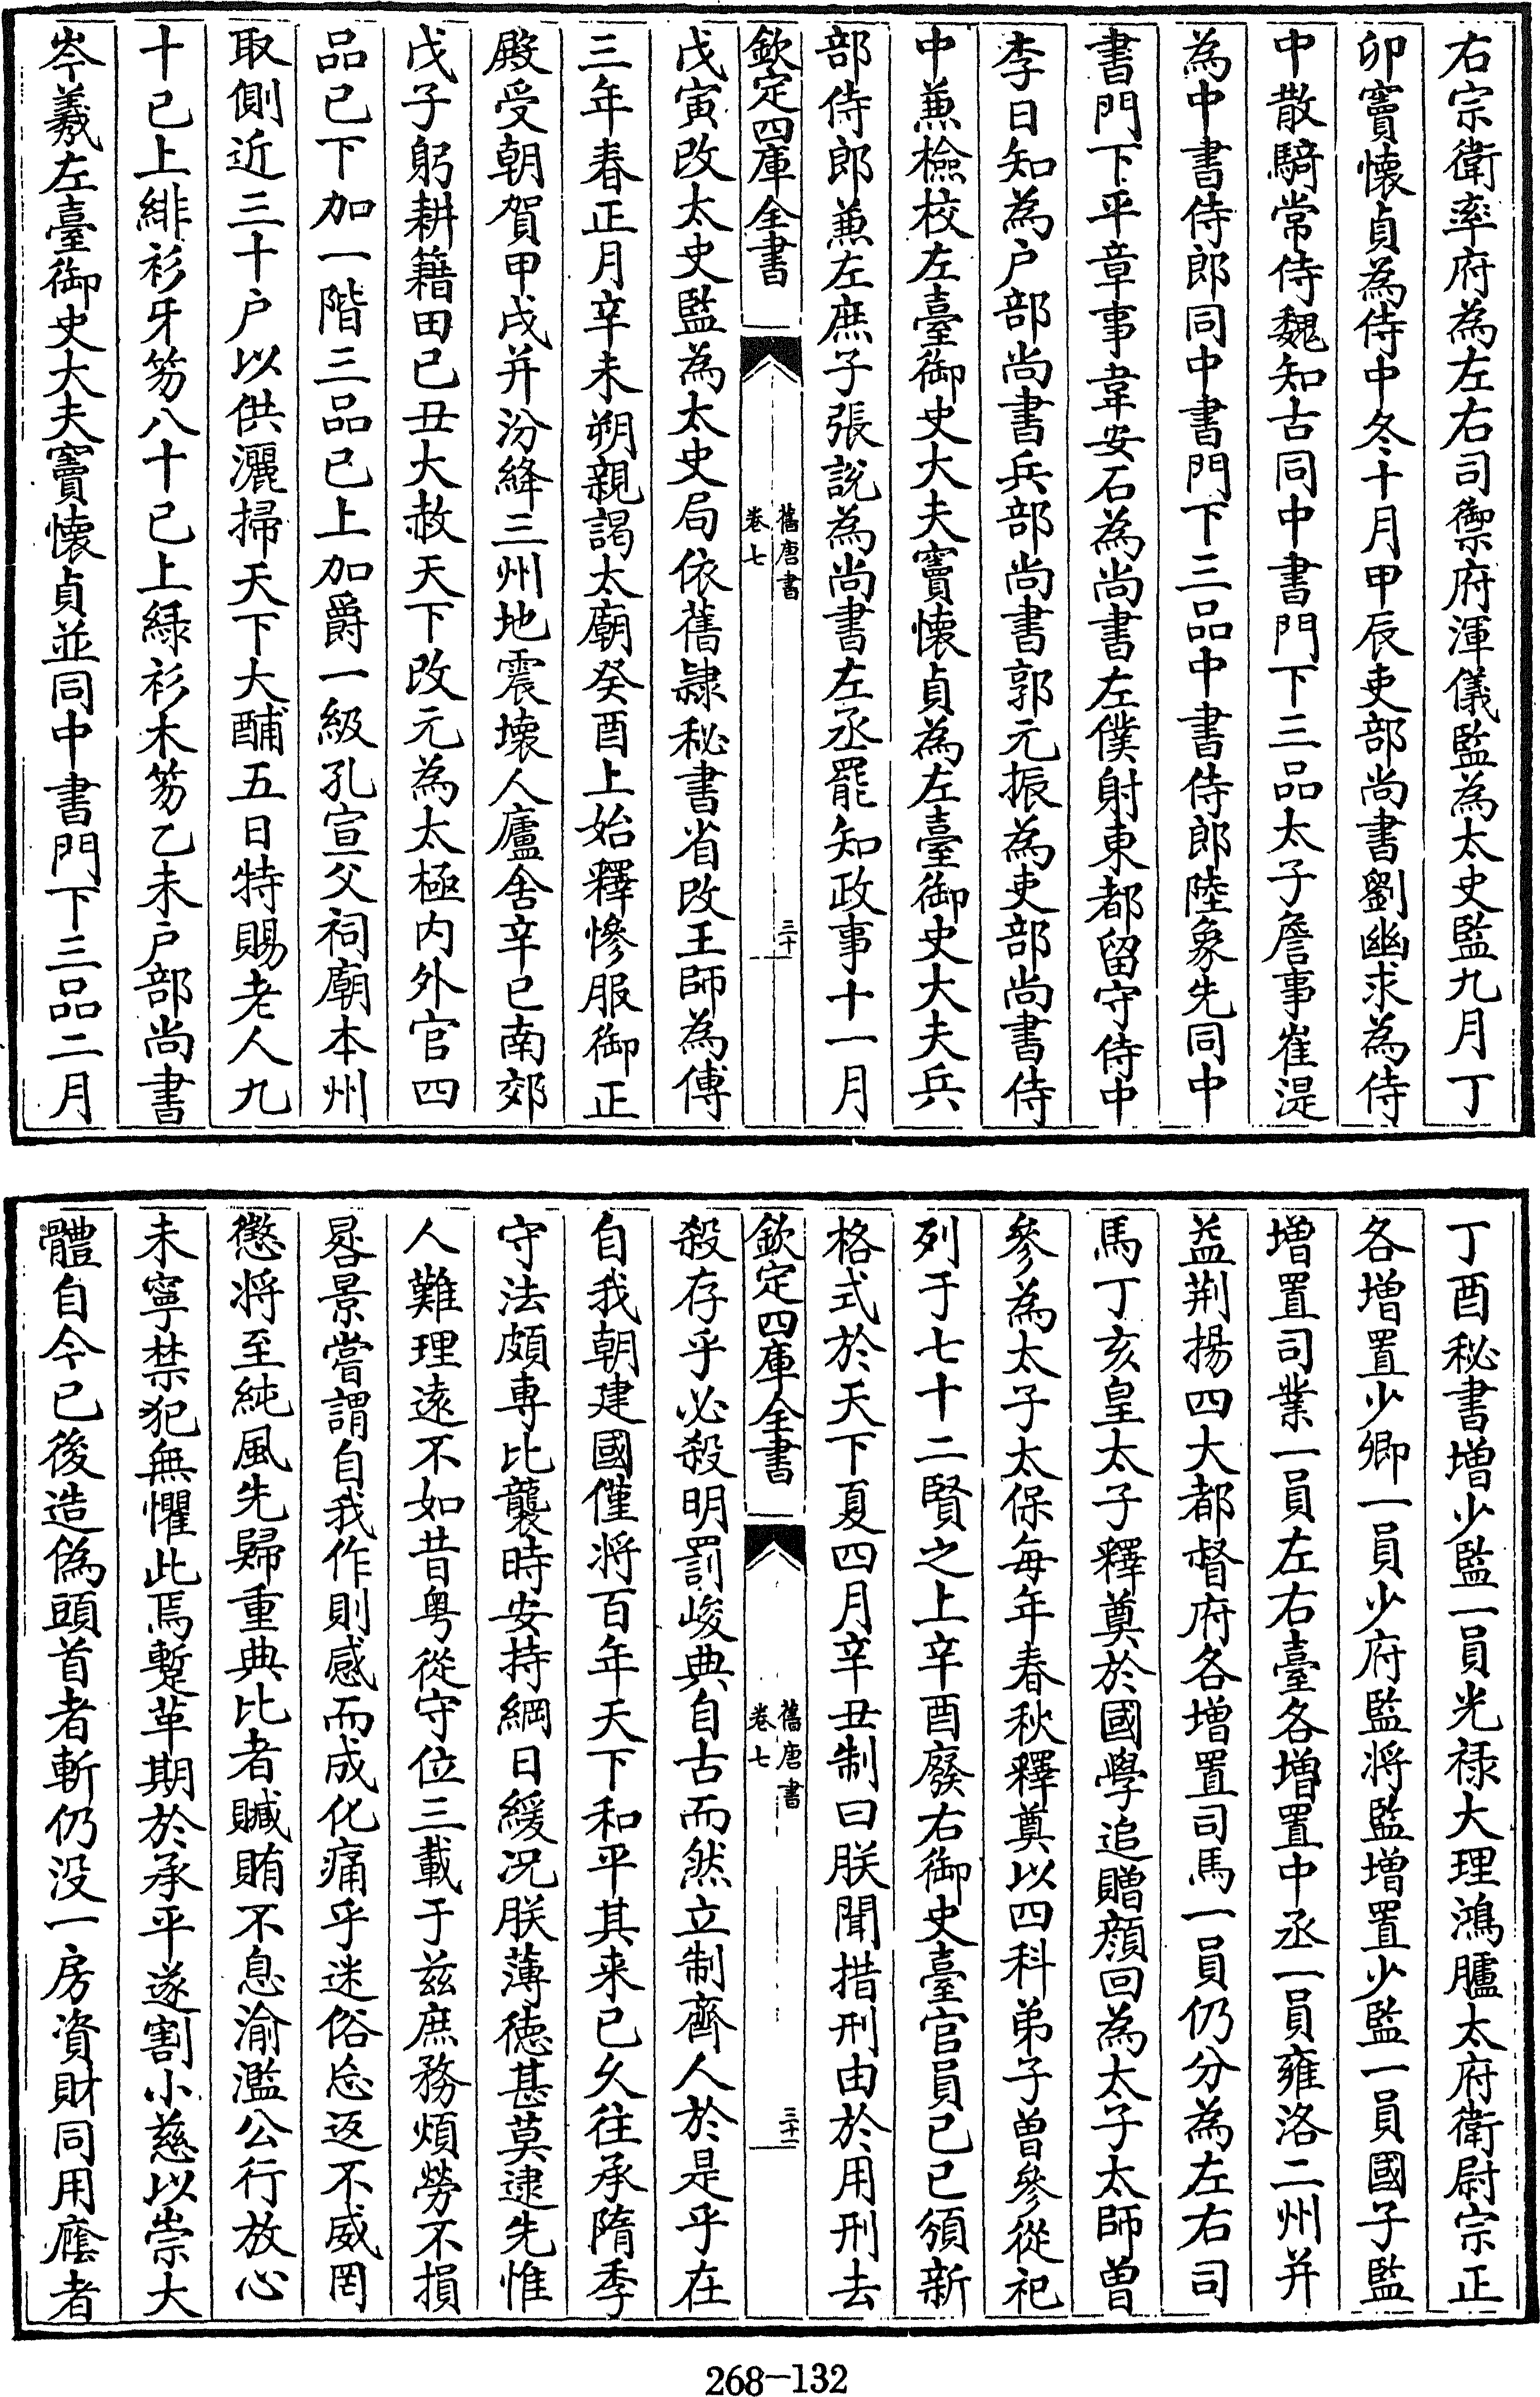 右宗衛率府為左右司禦府渾儀監為太史監九月丁
卯竇懷貞為侍中冬十月甲辰吏部尚書劉幽求為侍
中散騎常侍魏知古同中書門下三品太子詹事崔湜
為中書侍郎同中書門下三品中書侍郎陸象先同中
書門下平章事韋安石為尚書左僕射東都留守侍中
李日知為户部尚書兵部尚書郭元振為吏部尚書侍
中兼檢校左臺御史大夫竇懷貞為左臺御史大夫兵
部侍郎兼左庶子張說為尚書左丞罷知政事十一月
欽定四庫全書
舊唐書
卷七
三十
戊寅改太史監為太史局依舊隷秘書省改王師為傅
三年春正月辛未朔親謁太廟癸酉上始釋慘服御正
殿受朝賀甲戌并汾絳三州地震壞人廬舍辛巳南郊
戊子躬耕籍田己丑大赦天下改元為太極内外官四
品已下加一階三品已上加爵一級孔宣父祠廟本州
取側近三十户以供灑掃天下大酺五日特賜老人九
十已上緋衫牙笏八十已上緑衫木笏乙未户部尚書
岑羲左臺御史大夫竇懷貞並同中書門下三品二月
丁酉秘書増少監一員光禄大理鴻臚太府衛尉宗正
各増置少卿一員少府監将監増置少監一員國子監
増置司業一員左右臺各増置中丞一員雍洛二州并
益荆揚四大都督府各增置司馬一員仍分為左右司
馬丁亥皇太子釋奠於國學追贈顔回為太子太師曽
參為太子太保每年春秋釋奠以四科弟子曽參從祀
列于七十二賢之上辛酉廢右御史臺官員己巳頒新
格式於天下夏四月辛丑制曰朕聞措刑由於用刑去
欽定四庫全書
舊唐書
卷七
三十一
殺存乎必殺明罰峻典自古而然立制齊人於是乎在
自我朝建國僅将百年天下和平其来已久往承隋季
守法頗専比襲時安持綱日緩况朕薄徳甚莫逮先惟
人難理逺不如昔粤從守位三載于兹庶務煩勞不損
晷景嘗謂自我作則感而成化痛乎迷俗忘返不威罔
懲将至純風先歸重典比者贓賄不息渝濫公行放心
未寧禁犯無懼此焉蹔革期於承平遂割小慈以崇大
體自今已後造偽頭首者斬仍没一房資財同用廕者
268-132